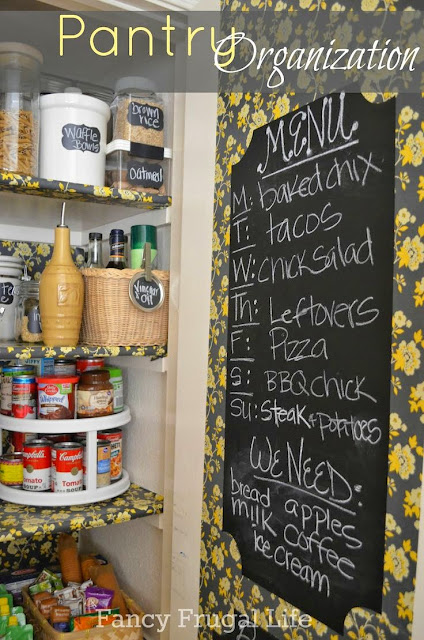 Pantry
Organization
Waffle
Bowls
Brown
rice
Oatmeal
Tea
Vinegar
& Oil
Betty
Crocker
Whipped
Campbell's
TOMATO
Campbell's
TOMATO
MENU
M: baked chix
T: tacos
W: chick salad
Th: Leftovers
F: Pizza
S: BBQ chick
SU: Steak + potatoes
WE NEED:
bread apples
milk coffee
ice cream
Fancy Frugal Life